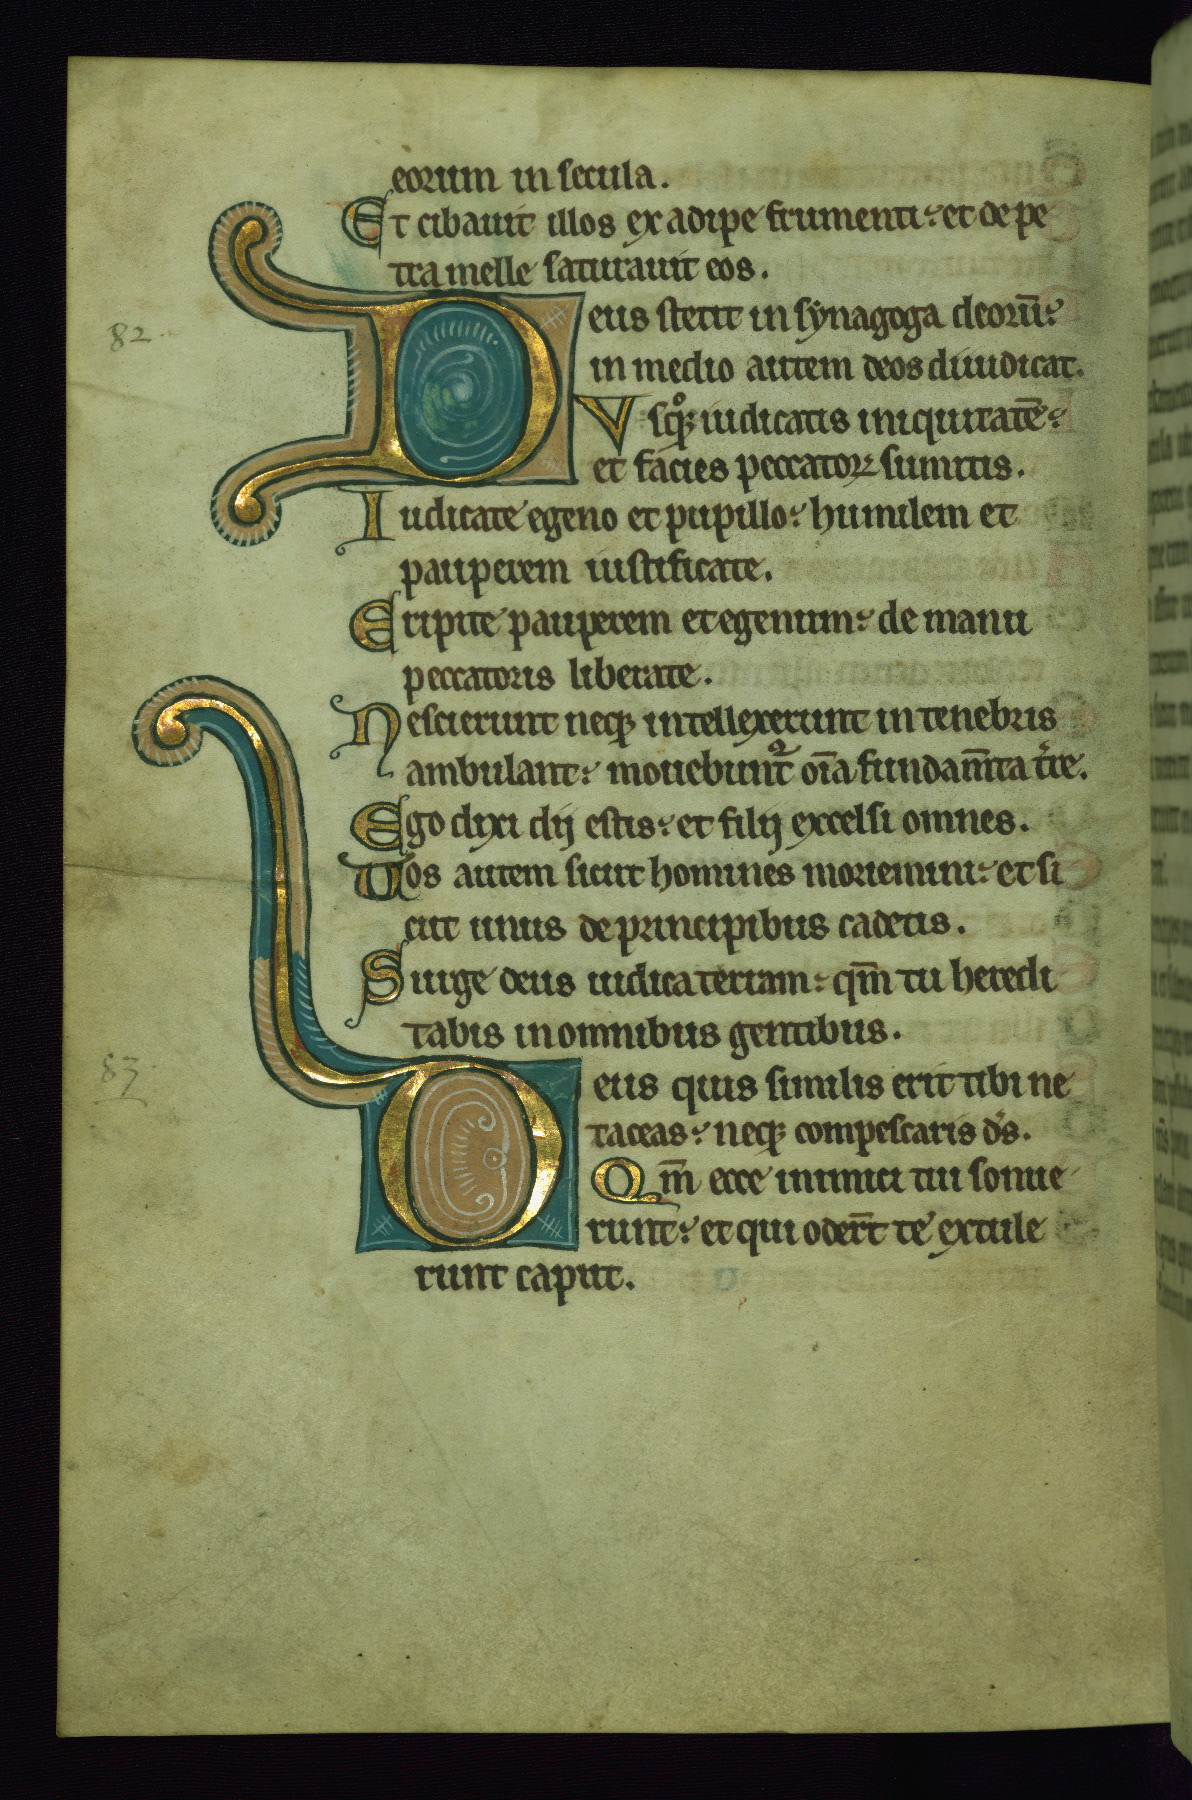 eorum in secula.
Et cibauit illos ex adipe frumenti: et de pe
tra melle saturauit eos.
82
Deus stetit in synagoga deorū:
in medio autem deos diiudicat.
Vsq̨o iudicatis iniquitatē:
et facies peccatoꝝ sumitis.
Iudicate egeno et pupillo: humilem et
pauperem iustificate.
Eripite pauperem et egenum: de manu
peccatoris liberate.
Nescierunt neqꝫ intellexerunt in tenebris
ambulant: mouebunt᷑ oīa fundam̄ta t̄re.
Ego dixi dij estis: et filij excelsi omnes.
Uos autem sicut homines moriemini: et si
cut unus de principibus cadetis.
Surge deus iudica terram: qm̄ tu heredi
tabis in omnibus gentibus.
83
Deus quis similis erit tibi ne
taceas: neqꝫ compescaris ds̄.
Qm̄ ecce inimici tui sonue
runt: et qui oder̄t te extule
runt caput.